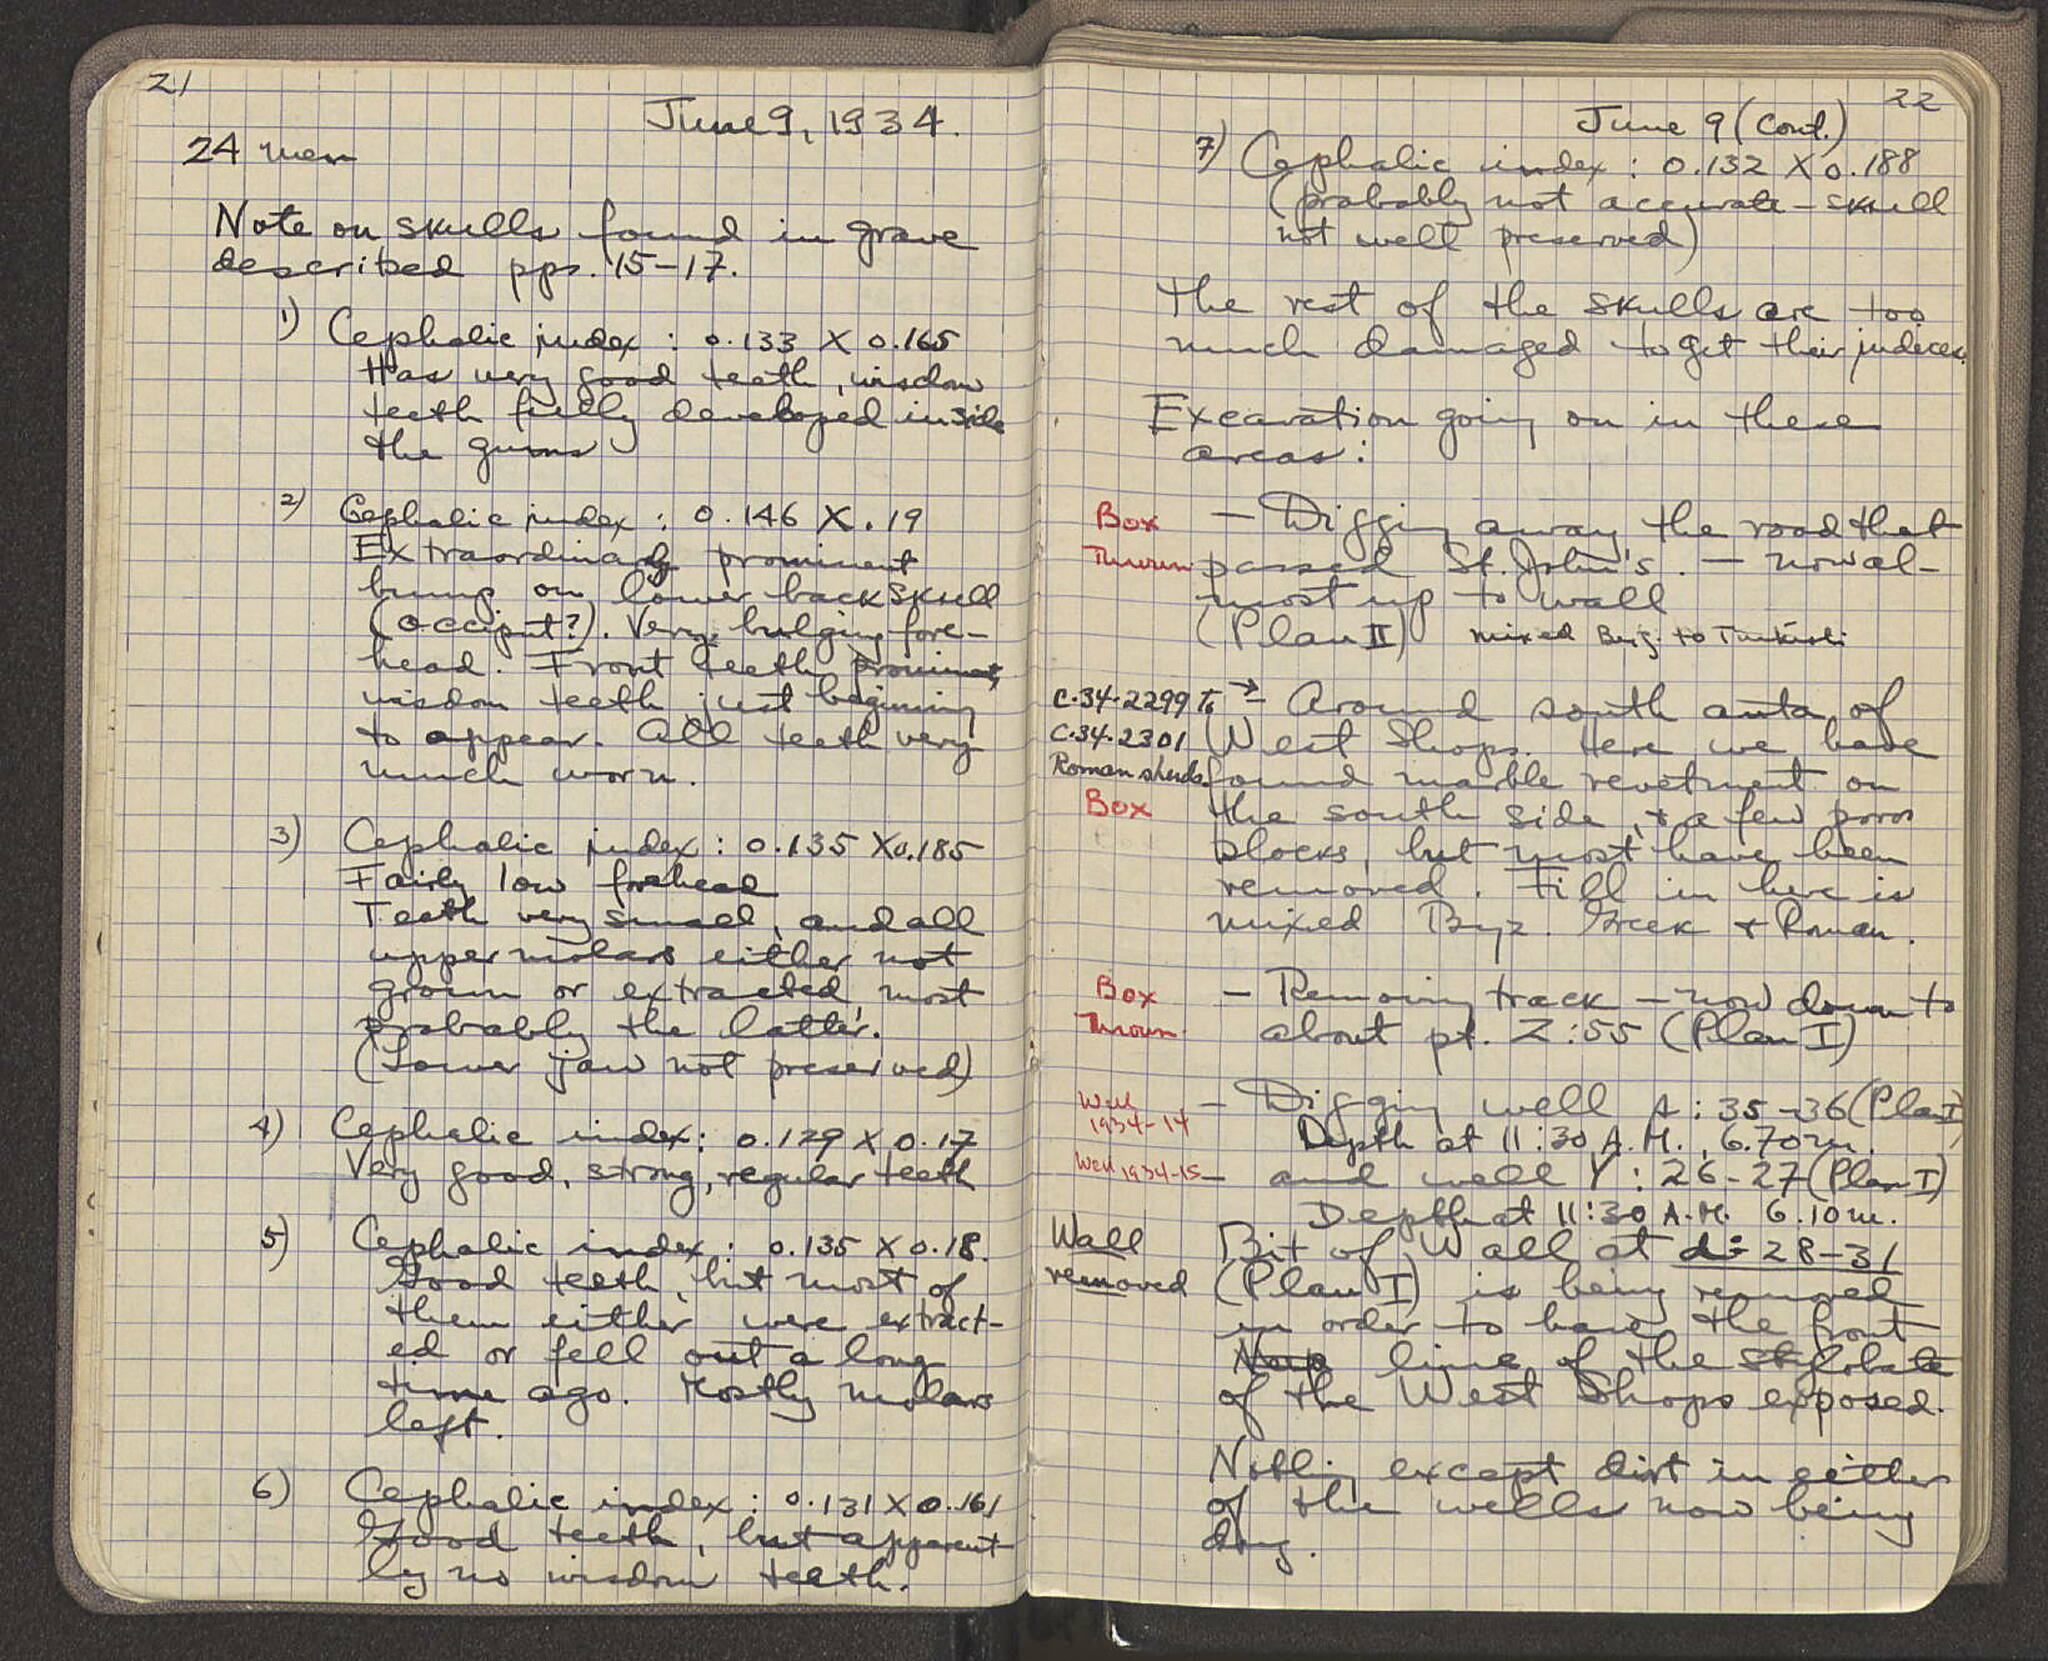 21
June 9, 1934.
24 men
Note on skulls found in grave
described pps. 15-17.
1) Cephalic index : 0.133 X 0.165
Has very good teeth, wisdom
teeth fully developed inside
the gums
2) Cephalic index : 0.146 X .19
Extraordinarily prominent
bump on lower back skull
(occiput?). Very bulging fore-
head. Front teeth prominent,
wisdom teeth just beginning
to appear. All teeth very
much worn.
3) Cephalic index : 0.135 X 0.185
Fairly low forehead
Teeth very small, and all
upper molars either not
grown or extracted, most
probably the latter.
(Lower jaw not preserved)
4) Cephalic index : 0.129 X 0.17
Very good, strong, regular teeth
5) Cephalic index : 0.135 X 0.18.
Good teeth, but most of
them either were extract-
ed or fell out a long
time ago. Mostly molars
left.
6) Cephalic index : 0.131 X 0.161
Good teeth, but apparent
ly no wisdom teeth.
22
June 9 (Cont.)
7) Cephalic index : 0.132 X 0.188
(probably not accurate - skull
not well preserved)
The rest of the skulls are too
much damaged to get their indeces.
Excavation going on in these
areas :
Box - Digging away the road that
Thrown passed St. John's. - now al-
most up to wall
(Plan II) mixed Byz. to Turkish
C-34-2299 to → - Around south anta of
C-34-2301 West Shops. Here we have
Roman sherds. found marble revetment on
Box the south side, + a few poros
blocks, but most have been
removed. Fill in here is
mixed Byz. Greek + Roman.
Box - Removing track - now down to
Thrown about pt. Z:55 (Plan I)
Well 1934-14 - Digging well A : 35-36 (Plan I)
Depth at 11:30 A.M., 6.70 m.
Well 1934-15 - and well Y : 26-27 (Plan I)
Depth at 11:30 A.M. 6.10 m.
Wall Bit of Wall at d : 28-31
removed (Plan I) is being removed
in order to have the front
line of the stylobate
of the West Shops exposed.
Nothing except dirt in either
of the wells now being
dug.